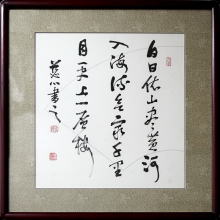 白日依山尽黄河
入海流欲穷千里
目更上一层楼
慧心书